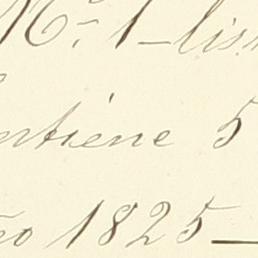 Nº 1 - lis
ntiene 5
ño 1825 —